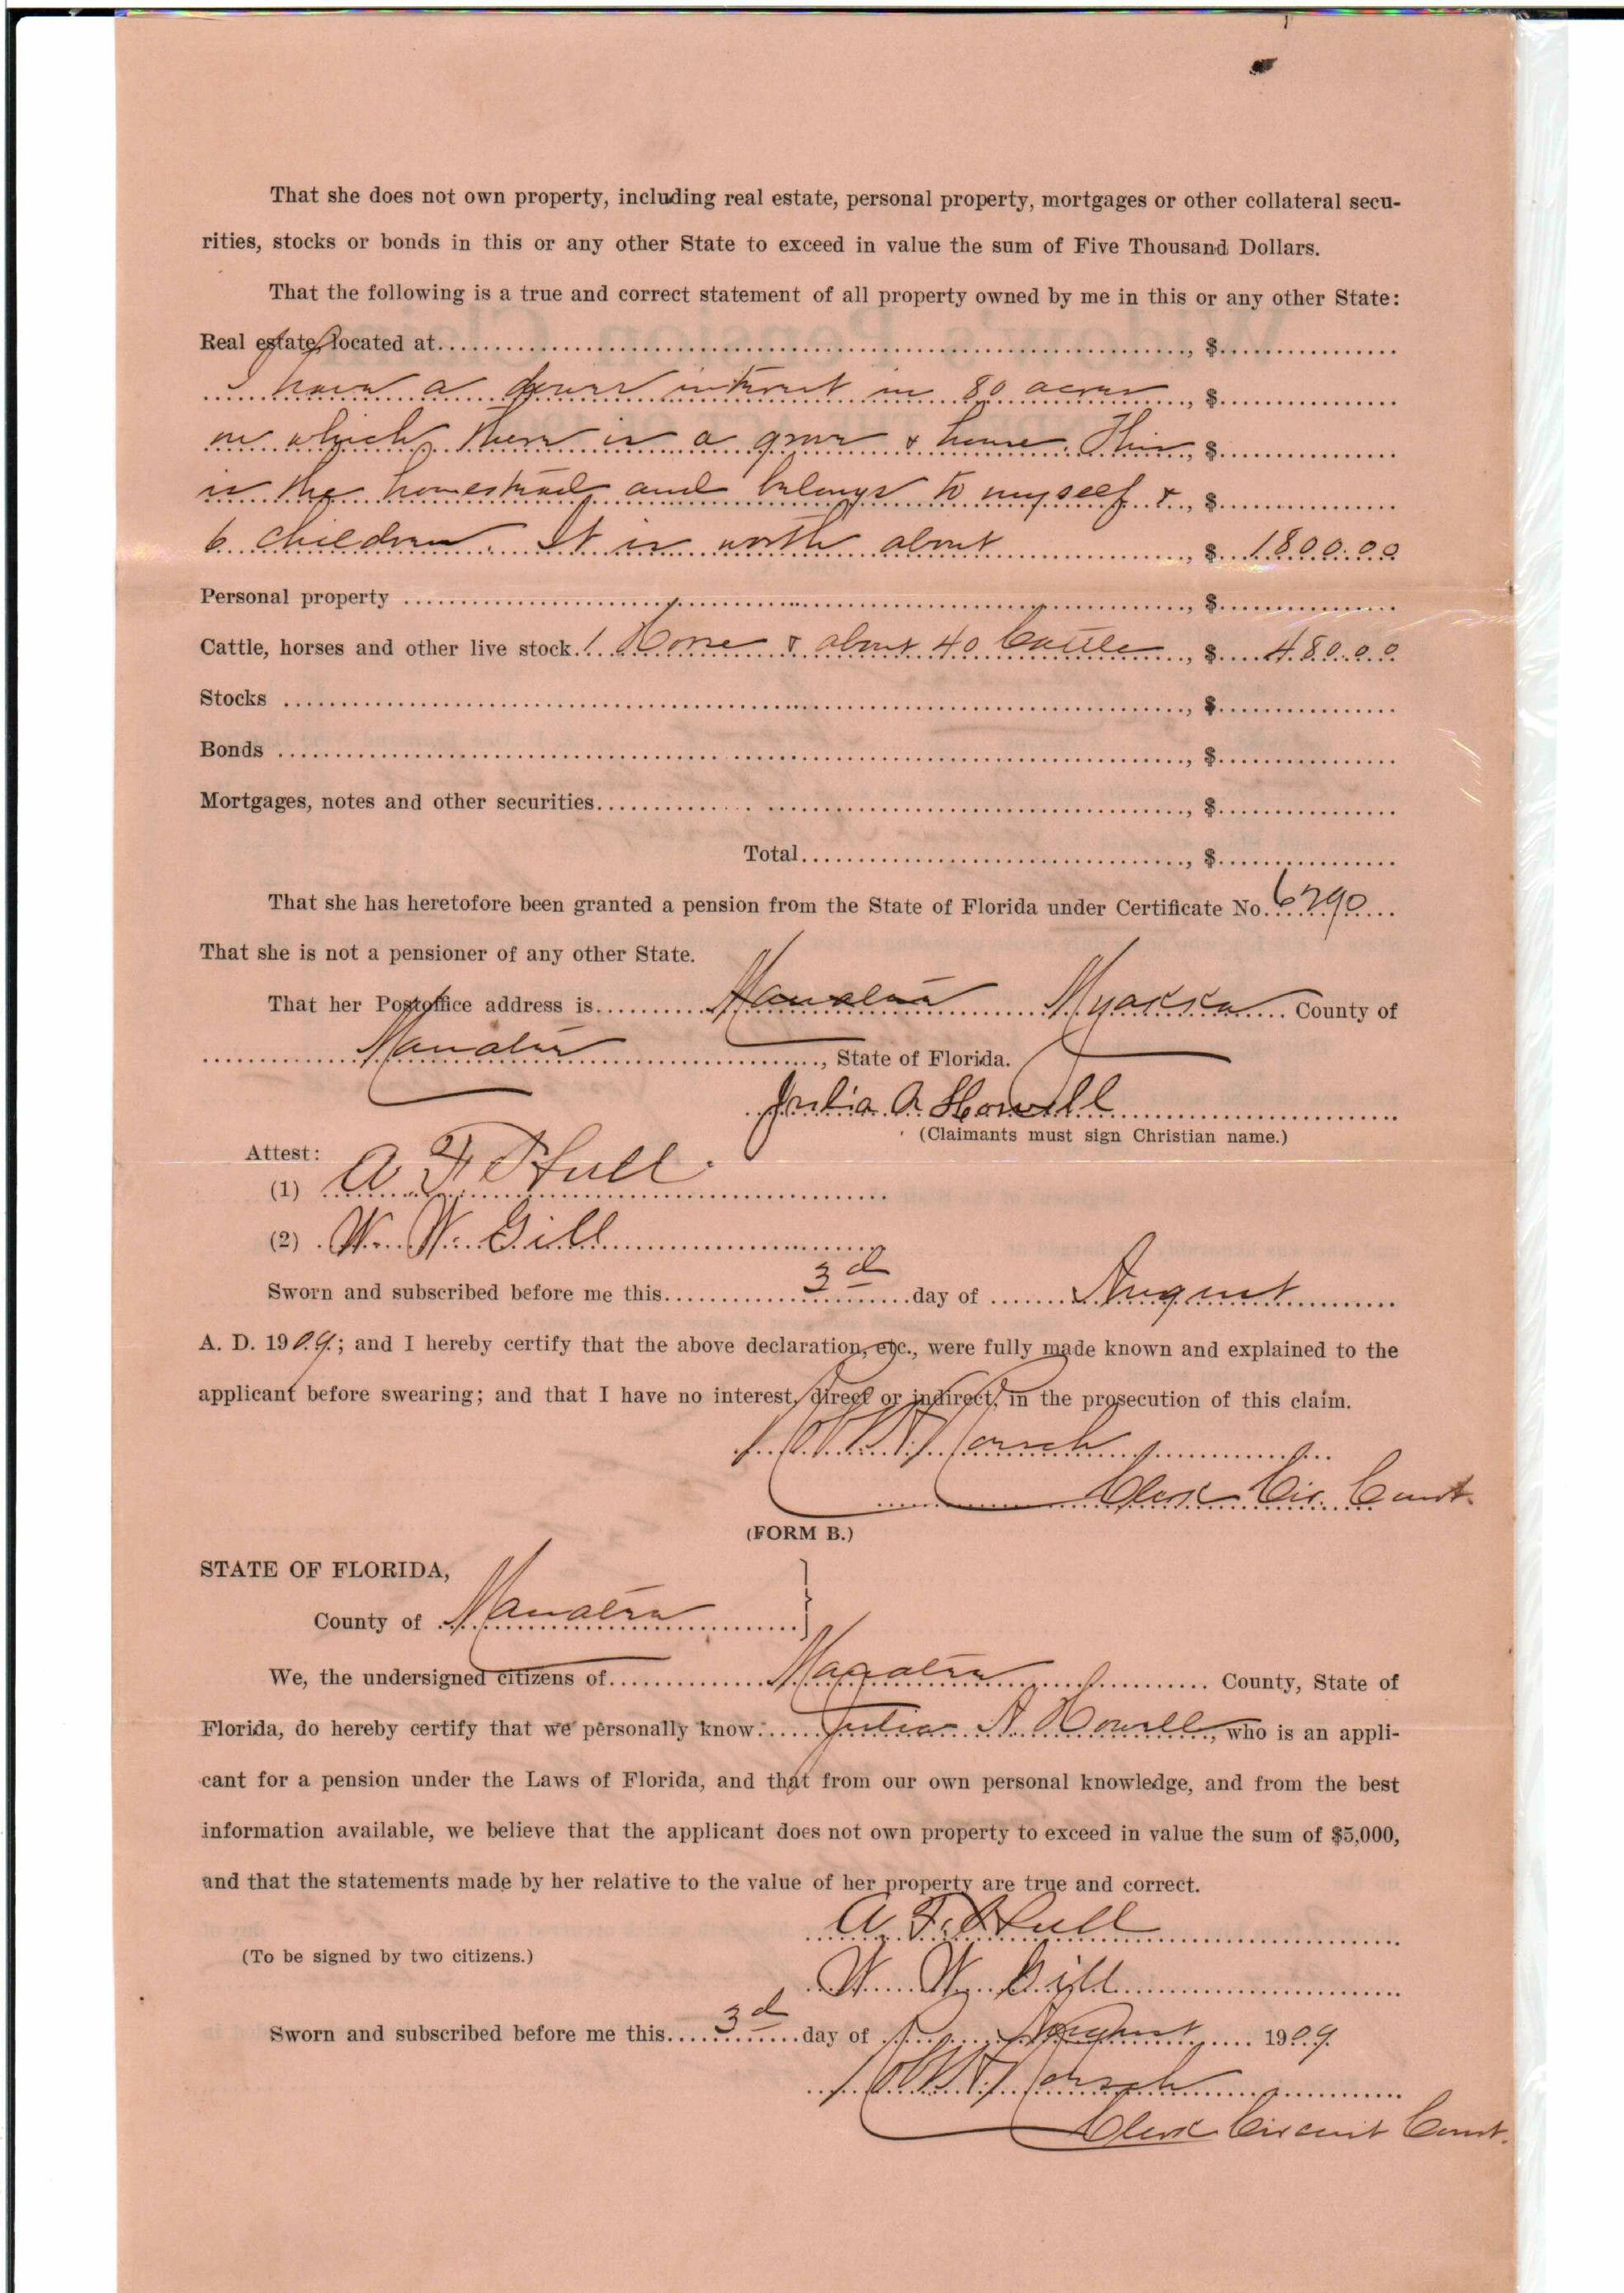 That she does not own property, including real estate, personal property, mortgages or other collateral secu-
rities, stocks or bonds in this or any other State to exceed in value the sum of Five Thousand Dollars.
That the following is a true and correct statement of all property owned by me in this or any other State:
Real estate, located at ...................., $............
I have a dower interest in 80 acres, $............
on which there is a grove & house. This, $............
is the homestead and belongs to myself &, $............
6 children. It is worth about, $ 1800.00
Personal property ...................., $............
Cattle, horses and other live stock. 1 Horse & about 40 Cattle, $ 480.00
Stocks ...................., $............
Bonds ...................., $............
Mortgages, notes and other securities...................., $............
Total...................., $............
That she has heretofore been granted a pension from the State of Florida under Certificate No. 6290
That she is not a pensioner of any other State.
That her Postoffice address is Manatee Myakka County of
Manatee, State of Florida.
Julia A Howell
(Claimants must sign Christian name.)
Attest:
(1) A F Hull
(2) W. W. Gill
Sworn and subscribed before me this 3d day of August
A. D. 1909; and I hereby certify that the above declaration, etc., were fully made known and explained to the
applicant before swearing; and that I have no interest, direct or indirect, in the prosecution of this claim.
Clerk Cir. Court.
(FORM B.)
STATE OF FLORIDA,
County of Manatee
We, the undersigned citizens of Manatee County, State of
Florida, do hereby certify that we personally know Julia A. Howell, who is an appli-
cant for a pension under the Laws of Florida, and that from our own personal knowledge, and from the best
information available, we believe that the applicant does not own property to exceed in value the sum of $5,000,
and that the statements made by her relative to the value of her property are true and correct.
A. F. Hull
(To be signed by two citizens.)
W. W. Gill
Sworn and subscribed before me this 3d day of August 1909.
Clerk Circuit Court.